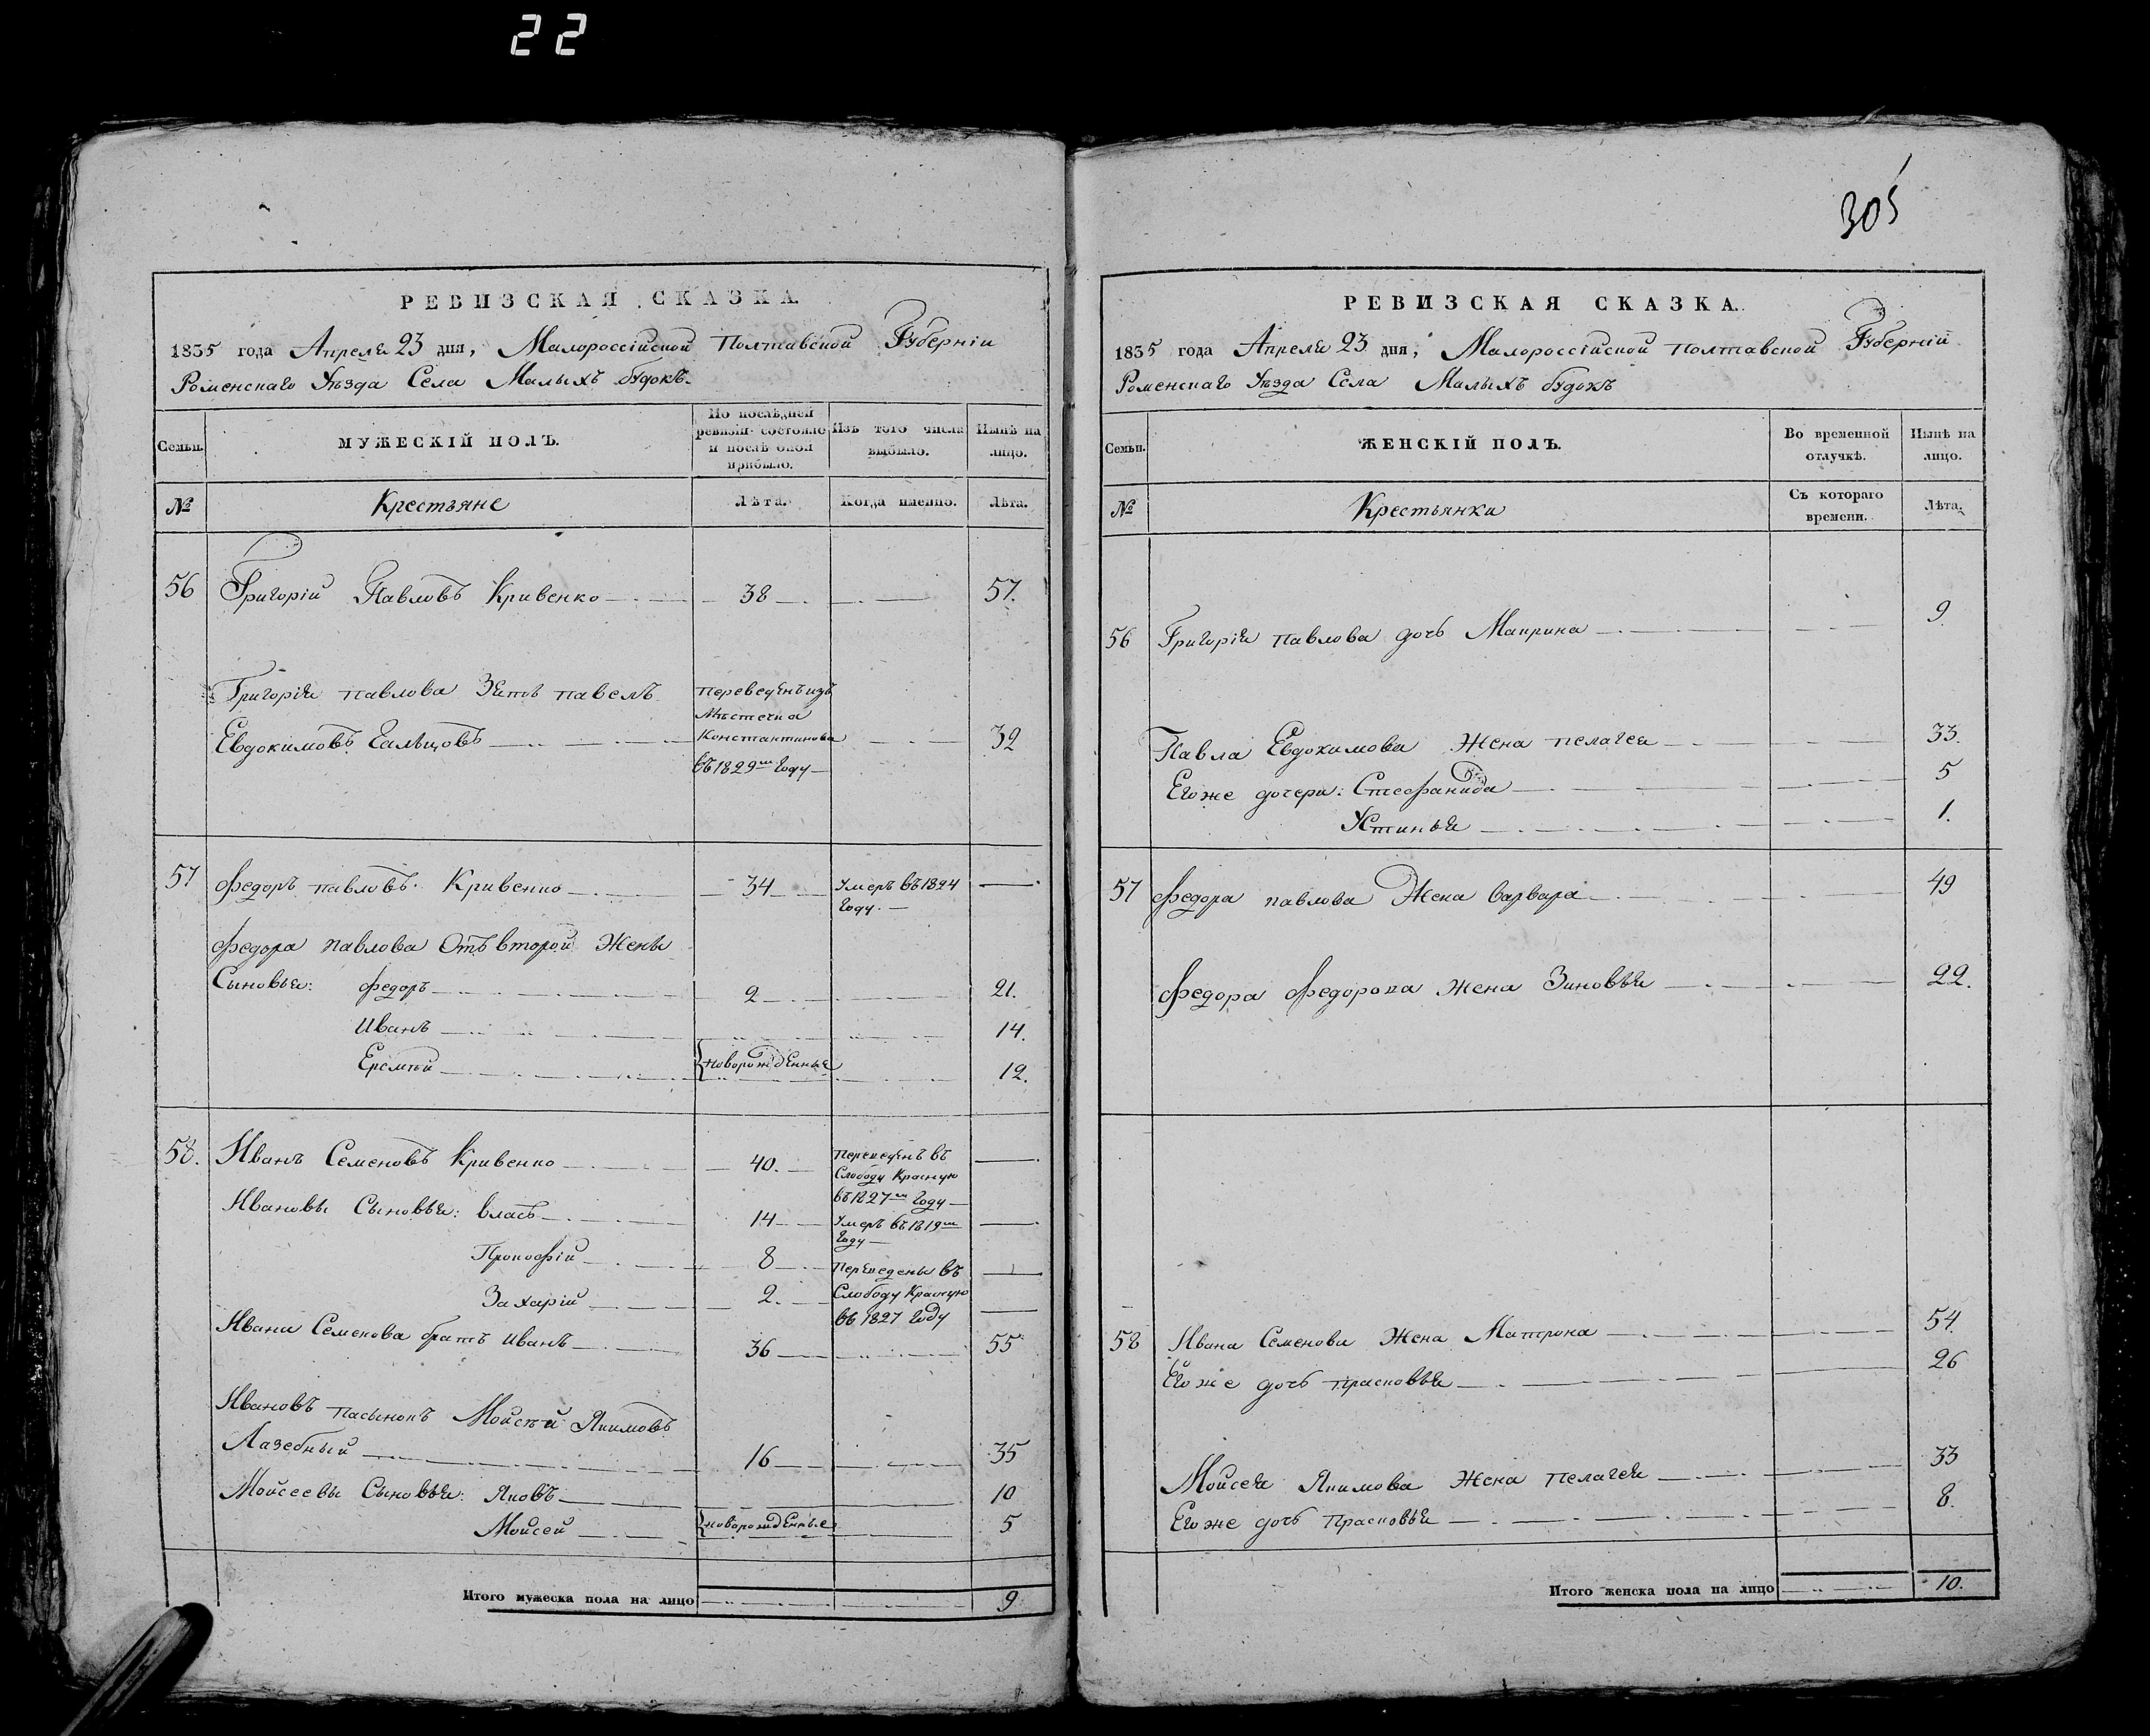 22
305
РЕВИЗСКАЯ СКАЗКА.
1835 года Апреля 23 дня, Малороссійской Полтавской Губерніи
Роменскаго Уѣзда Села Малыхъ будокъ.
Семьи.
МУЖЕСКІЙ ПОЛЪ.
По послѣдней ревизіи состояло и послѣ оной прибыло.
Изъ того числа выбыло.
Нынѣ на лицо.
№
Крестьяне
Лѣта.
Когда именно.
Лѣта.
56 Григорій Павловъ Кривенко 38 57.
Григорія павлова Зять павелъ
Евдокимовъ Гальцовъ 32
переведенъ изъ
Мѣстечка
Константинова
въ 1829м Году
57 федоръ павловъ Кривенко 34 Умеръ въ 1824
Году.
федора павлова Отъ второй Жены
Сыновья: федоръ 2 21.
Иванъ 14.
Еремѣй новорожденные 12.
58. Иванъ Семеновъ Кривенко 40. переведенъ въ
Слободу Красную
въ 1827м Году
Ивановы Сыновья: власъ 14 Умеръ въ 1819м
Году
Прокофій 8 переведены въ
Захарій 2. Слободу Красную
въ 1827 Году
Ивана Семенова братъ иванъ 36 55
Ивановъ пасынокъ Мойсѣй Якимовъ
Лазебный 16 35
Мойсеевы Сыновья: Яковъ 10
Мойсей новорожденные 5
Итого мужеска пола на лицо 9
РЕВИЗСКАЯ СКАЗКА.
1835 года Апреля 23 дня, Малороссійской полтавской Губерніи
Роменскаго Уѣзда Села Малыхъ будокъ
Семьи.
ЖЕНСКІЙ ПОЛЪ.
Во временной отлучкѣ.
Нынѣ на лицо.
№
Крестьянки
Съ котораго времени.
Лѣта.
56 Григорія павлова дочь Маврина 9
Павла Евдокимова Жена пелагея 33.
Его же дочери: Стефанида 5
Устинья 1.
57 федора павлова Жена варвара 49
федора федорова жена Зиновья 22.
58 Ивана Семенова Жена Матрона 54.
Его же дочь прасковья 26
Мойсея Якимова Жена пелагея 33
Его же дочь прасковья 8.
Итого женска пола на лицо 10.